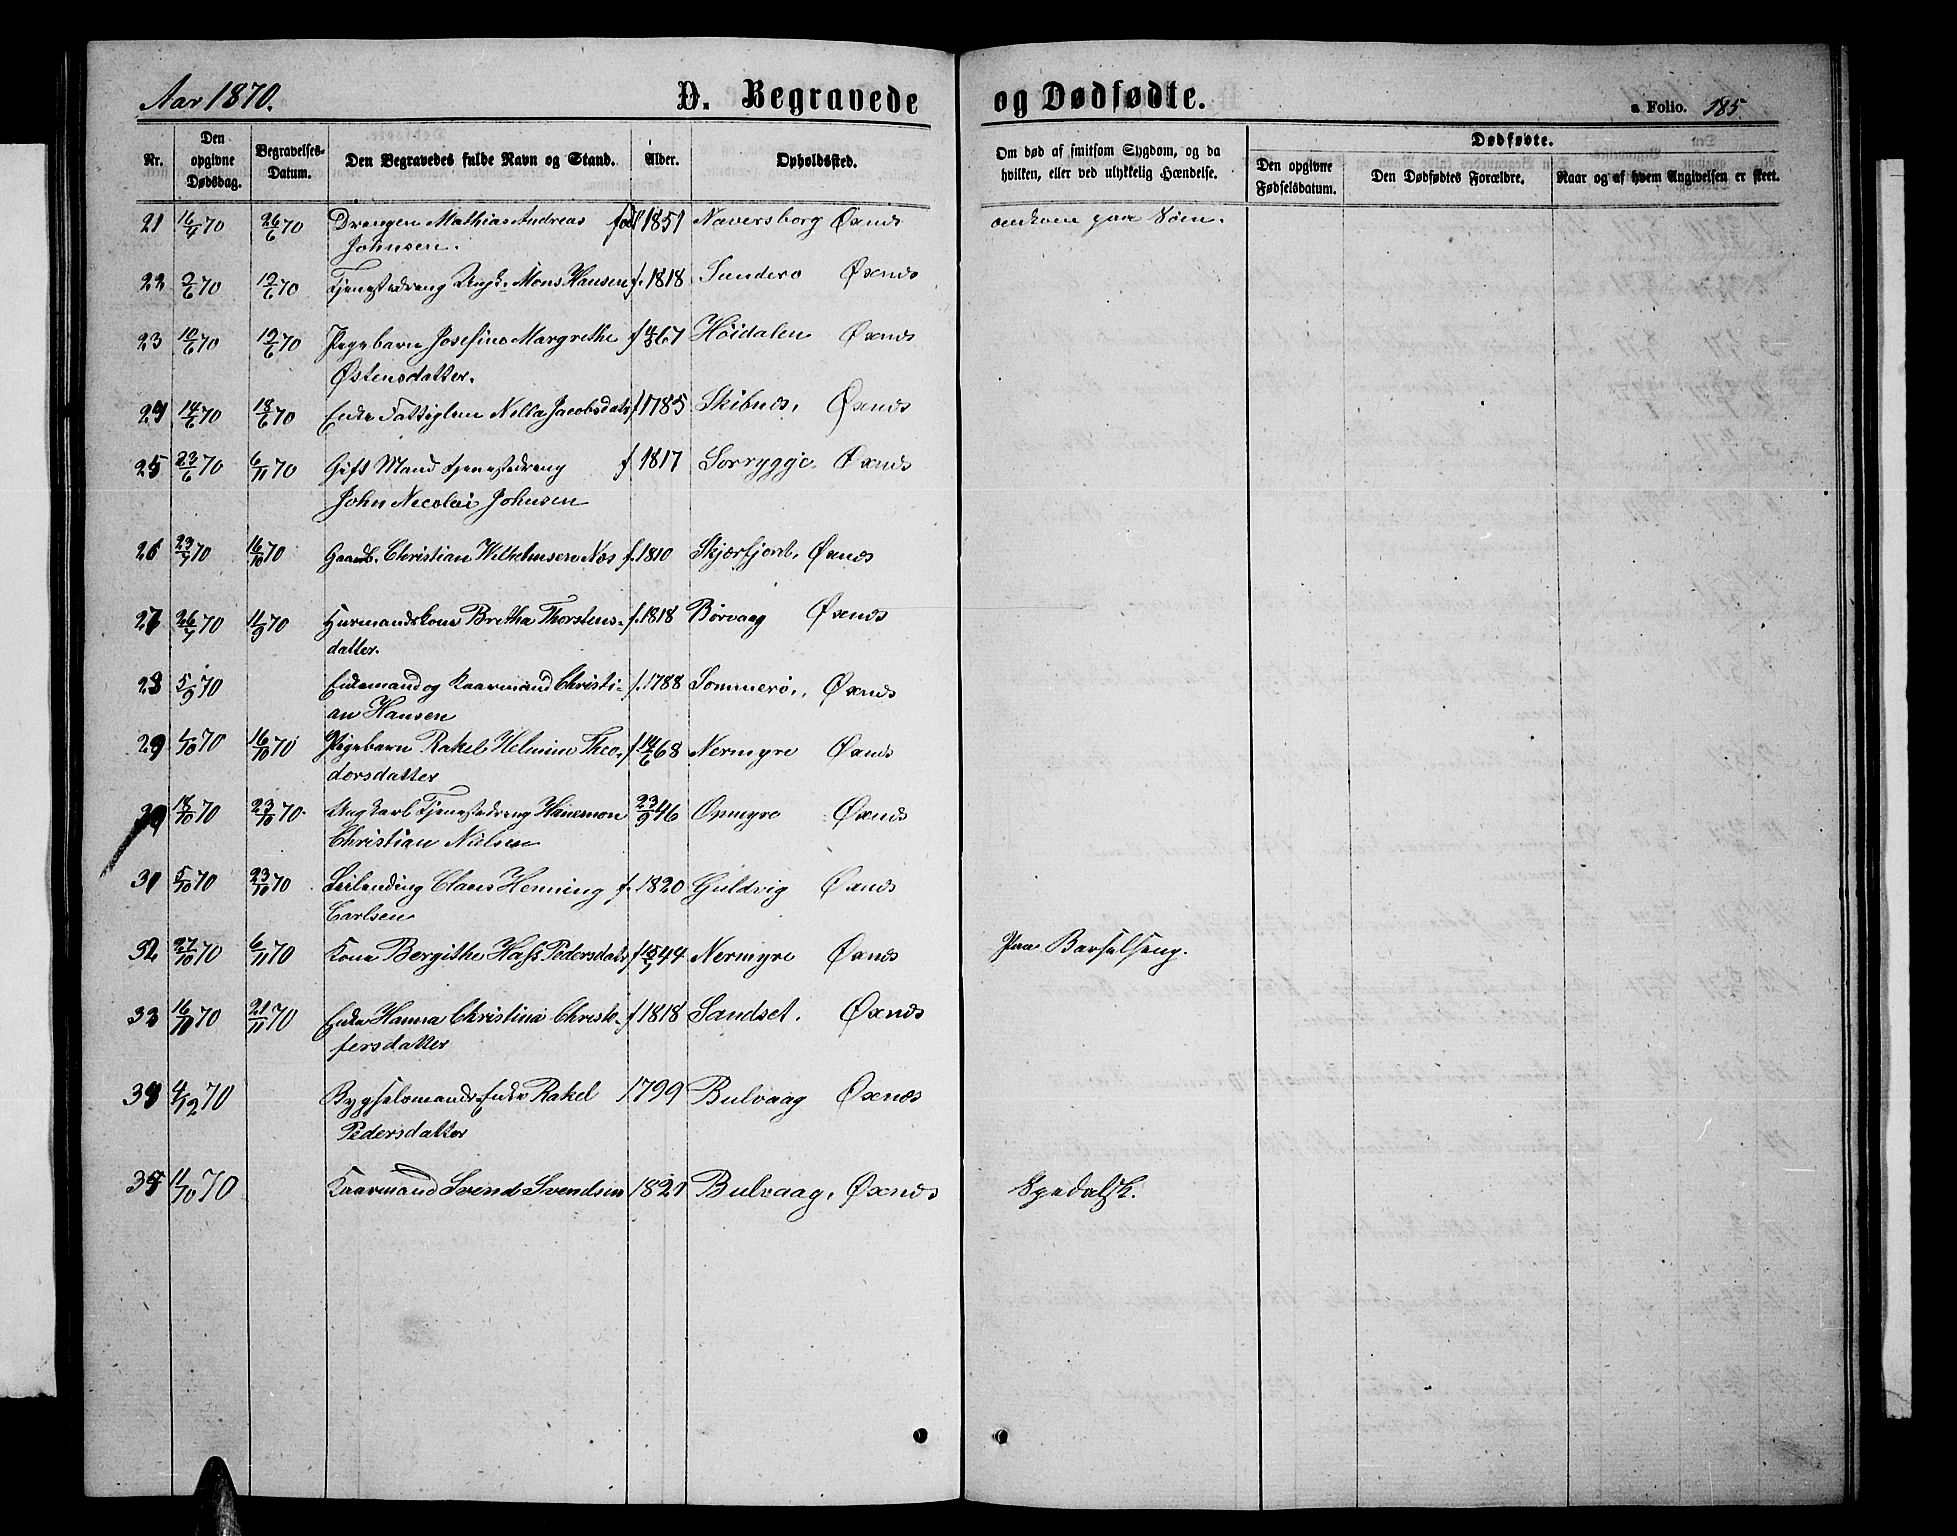 Aar 1870. D. Begravede og Dødfødte. a Folio. 185
Nr. Den opgivne Dødsdag. Begravelses-Datum. Den Begravedes fulde Navn og Stand. Alder. Opholdssted. Om død af smitsom Sygdom, og da hvilken, eller ved ulykkelig Hændelse. Dødfødte. Den opgivne Fødselsdatum. Den Dødfødtes Forældre. Naar og af hvem Angivelsen er skeet.
21 16/4 70 26/6 70 Drengen Mathias Andreas fød 1851 Naversborg Øxnes omkom paa Søen.
Johnsen.
22 2/6 70 12/6 70 Tjenestedreng Ungk. Mons Hansen f. 1818 Sandero Øxnes
23 10/6 70 12/6 70 Pigebarn Josefine Margrethe f 4/3 67 Höidalen Øxnes
Østensdatter.
24 14/6 70 18/6 70 Enke Fattiglem Nella Jacobsdatr f 1785 Skibnes, Øxnes
25 23/6 70 6/11 70 Gift Mand Tjenestedreng f 1817 Sorrygge, Øxnes
John Nicolai Johnsen
26 23/7 70 16/10 70 Gaardb. Christian Wilhelmsen Nøs f. 1810 Skjærfjord, Øxnes
27 26/7 70 11/9 70 Husmandskone Bretha Thorstens- f. 1818 Børvaag Øxnes
datter.
28 5/9 70 Enkemand og Kaarmand Christi- f. 1788 Sommerø, Øxnes
an Hansen
29 1/10 70 16/10 70 Pigebarn Rakel Helmine Theo- f 14/6 68 Nermyre Øxnes
dorsdatter
30 18/10 70 23/10 70 Ungkarl Tjenestedreng Hanemon 23/9 46 Osmyre Øxnes
Christian Nielsen
31 5/10 70 23/10 70 Leilending Claus Henning f. 1820 Guldvig Øxnes
Carlsen
32 27/10 70 6/11 70 Kone Bergithe Hass Pedersdatr f 15/7 44 Nermyre Øxnes Paa Barselseng.
33 16/11 70 21/11 70 Enke Hanna Christina Christo- f 1818 Sandset. Øxnes
fersdatter
34 4/12 70 Bygselsmands Enke Rakel 1799 Bulvaag Øxnes
Pedersdatter
35 11/10 70 Kaarmand Svend Svendsen 1821 Bulvaag, Øxnes Spedalsk.